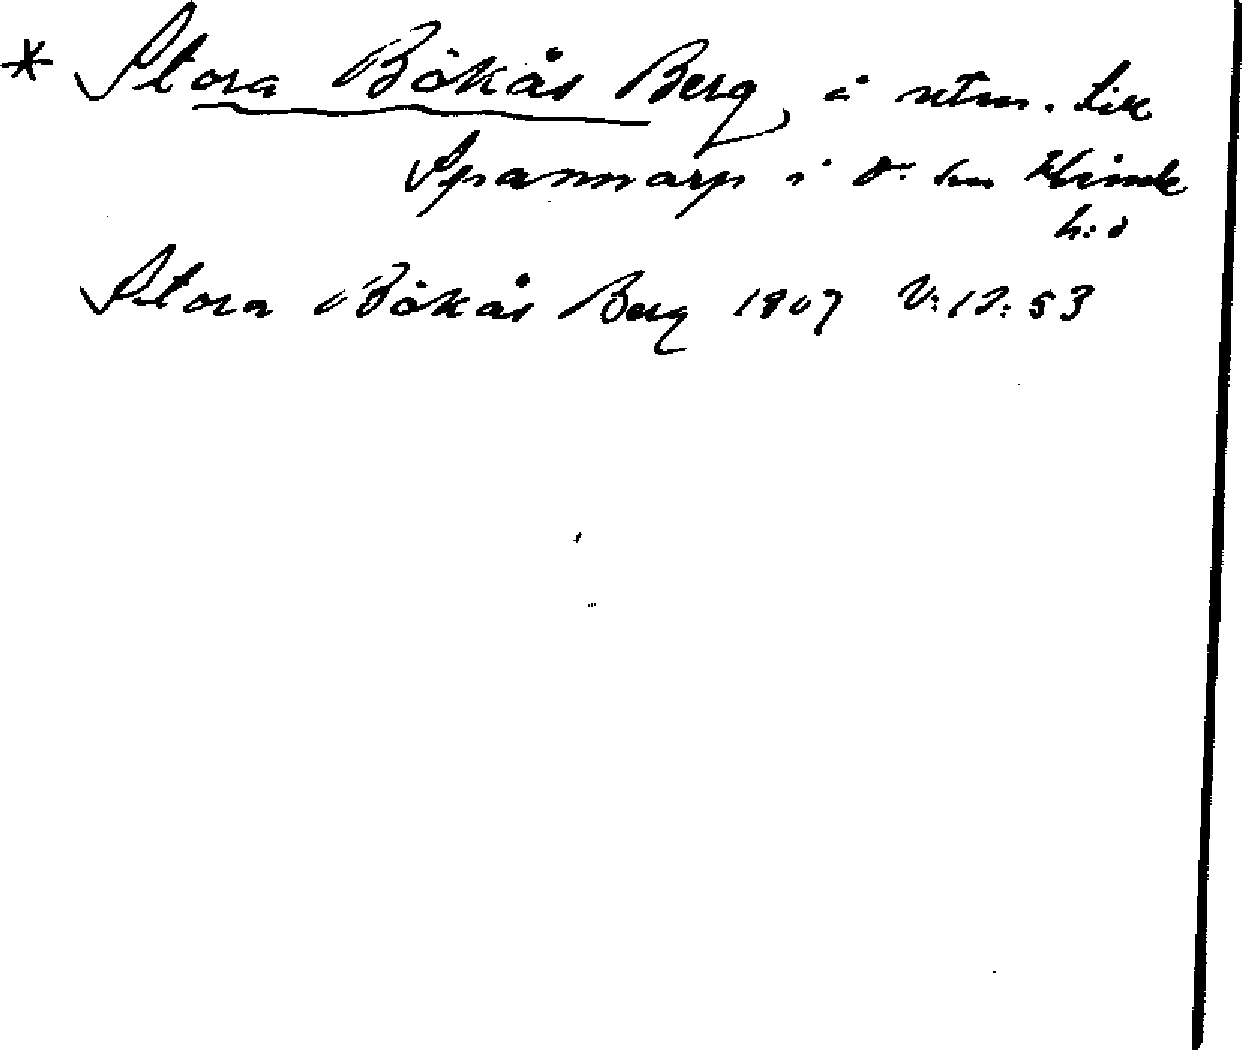 * Stora Bökås Berg, å utm. till
Spannarp i d. sn
h:d
Stora Bökås Berg 1907 V:12:53